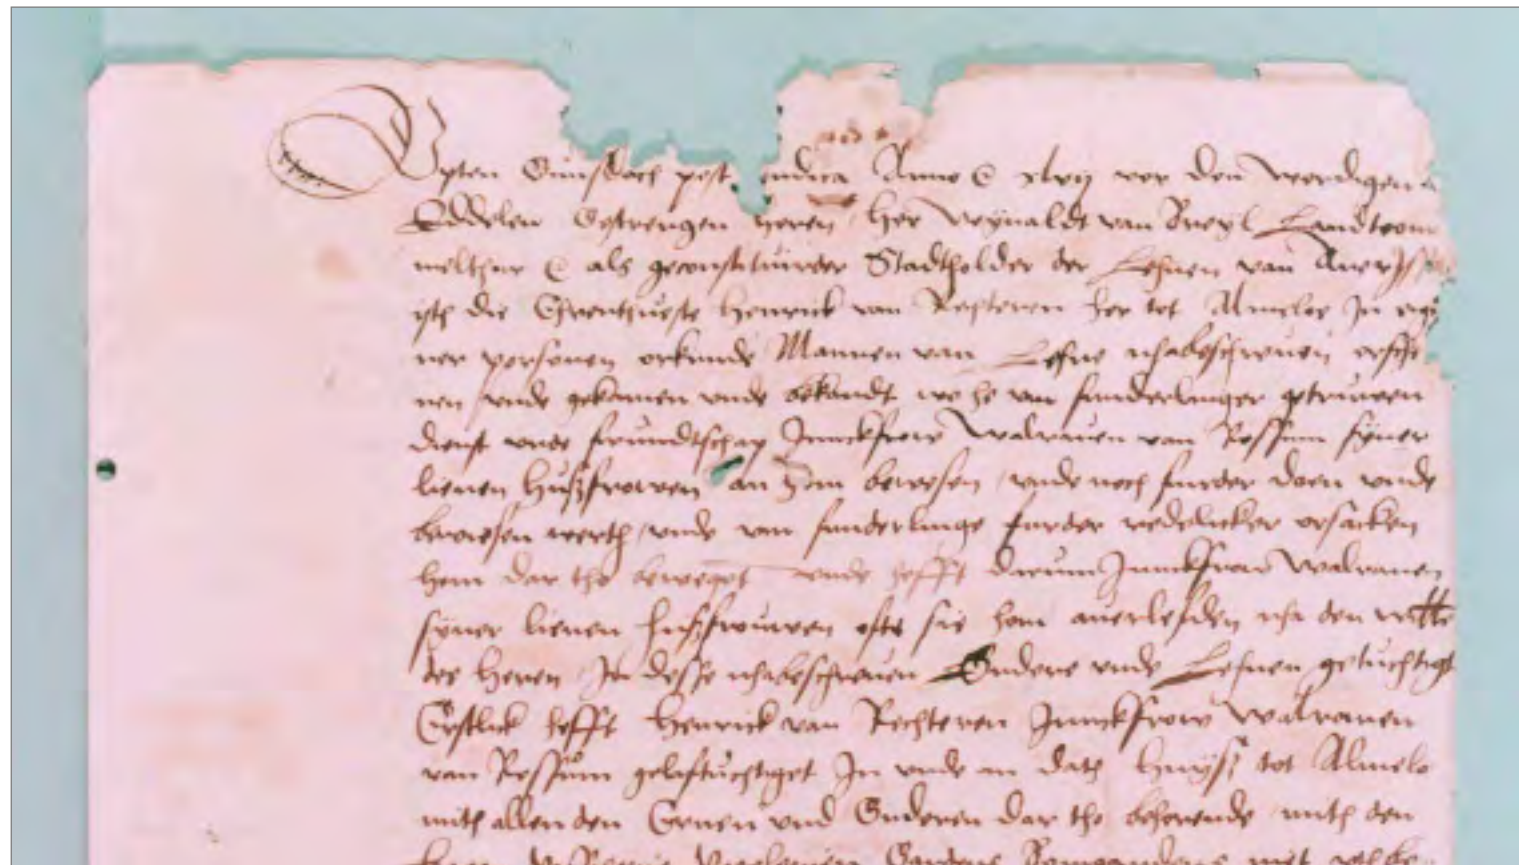 Upten Guinsdach post Judica Anno &c xlvij vor den werdigen
Eddelen Gestrengen heren her Reynaldt van Breyl Landtcom
melthur &c als geconstituirder Stadtholder der Lehnen van Auerÿss
ist die Erentueste Henrick van Rechteren her tot Almeloe In eig
ner personen orkunde Mannen van Lehne nhabeschreuen ersche
nen vnde gekomen vnde bekandt wo he van sunderlinger getruwen
dienst vnde frundtschap Junckfrow Walrauen van Rossum syner
lieuen hußfrowen an hom bewesen vnde noch furder doen vnde
bewesen werth vnde van sunderlinge furder redelicker orsacken
hem dar tho beweget vnde hefft darum Junckfrow Walrauen
syner lieuen hußfrouwen efte sie hom auerlefden nha den
des Heren In desse nhabeschreuen Gudere vnde Lehnen getuchtigt
Erstlick hefft Henrick van Rechteren Junckfrow Walrauen
van Rossum geliftuchtiget In vnde an datz huyß tot Almelo
mith allen den Eruen vnd Guderen dar tho behorende mith den